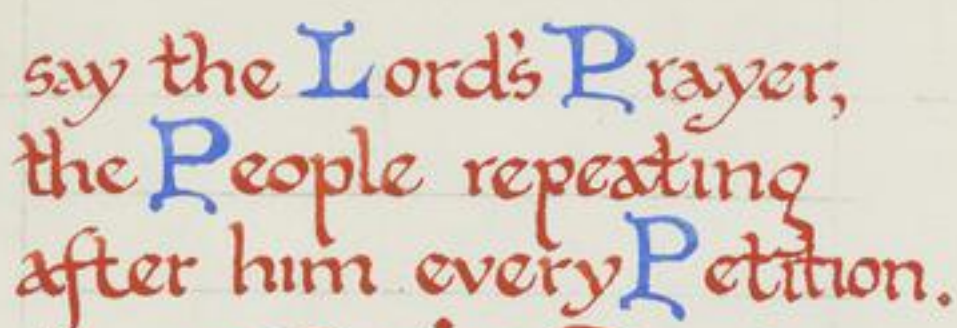 say the Lord's Prayer,
the People repeating
after him every Petition.